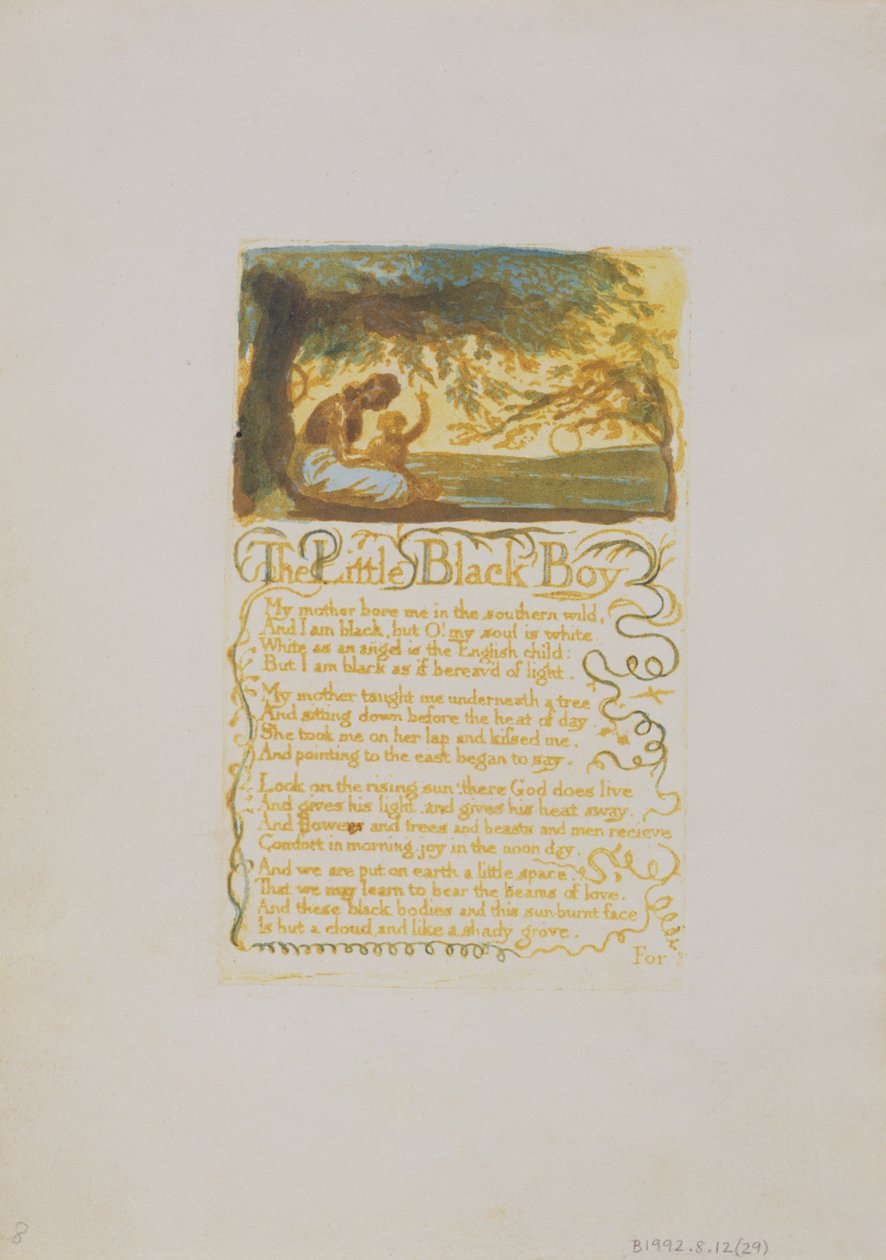 The Little Black Boy
My mother bore me in the southern wild,
And I am black, but O! my soul is white.
White as an angel is the English child:
But I am black as if bereav'd of light.
My mother taught me underneath a tree
And sitting down before the heat of day.
She took me on her lap and kissed me,
And pointing to the east began to say.
Look on the rising sun: there God does live
And gives his light, and gives his heat away.
And flowers and trees and beasts and men recieve
Comfort in morning joy in the noon day.
And we are put on earth a little space,
That we may learn to bear the beams of love,
And these black bodies and this sun-burnt face
Is but a cloud, and like a shady grove.
For
8
B1992.8.12(29)